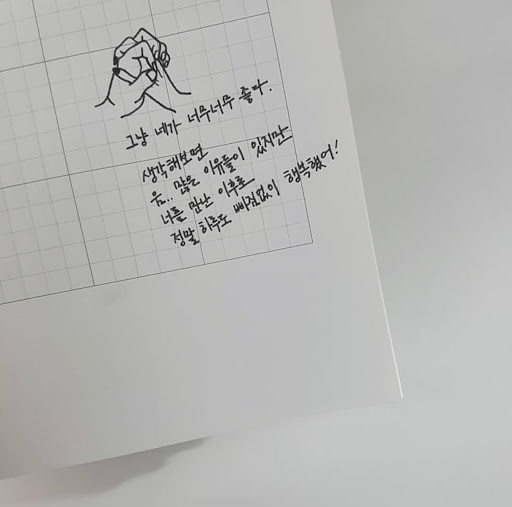 그냥 네가 너무너무 좋다.
생각해보면
음.. 많은 이유들이 있지만
너를 만난 이후로
정말 하루도 빠짐없이 행복했어!